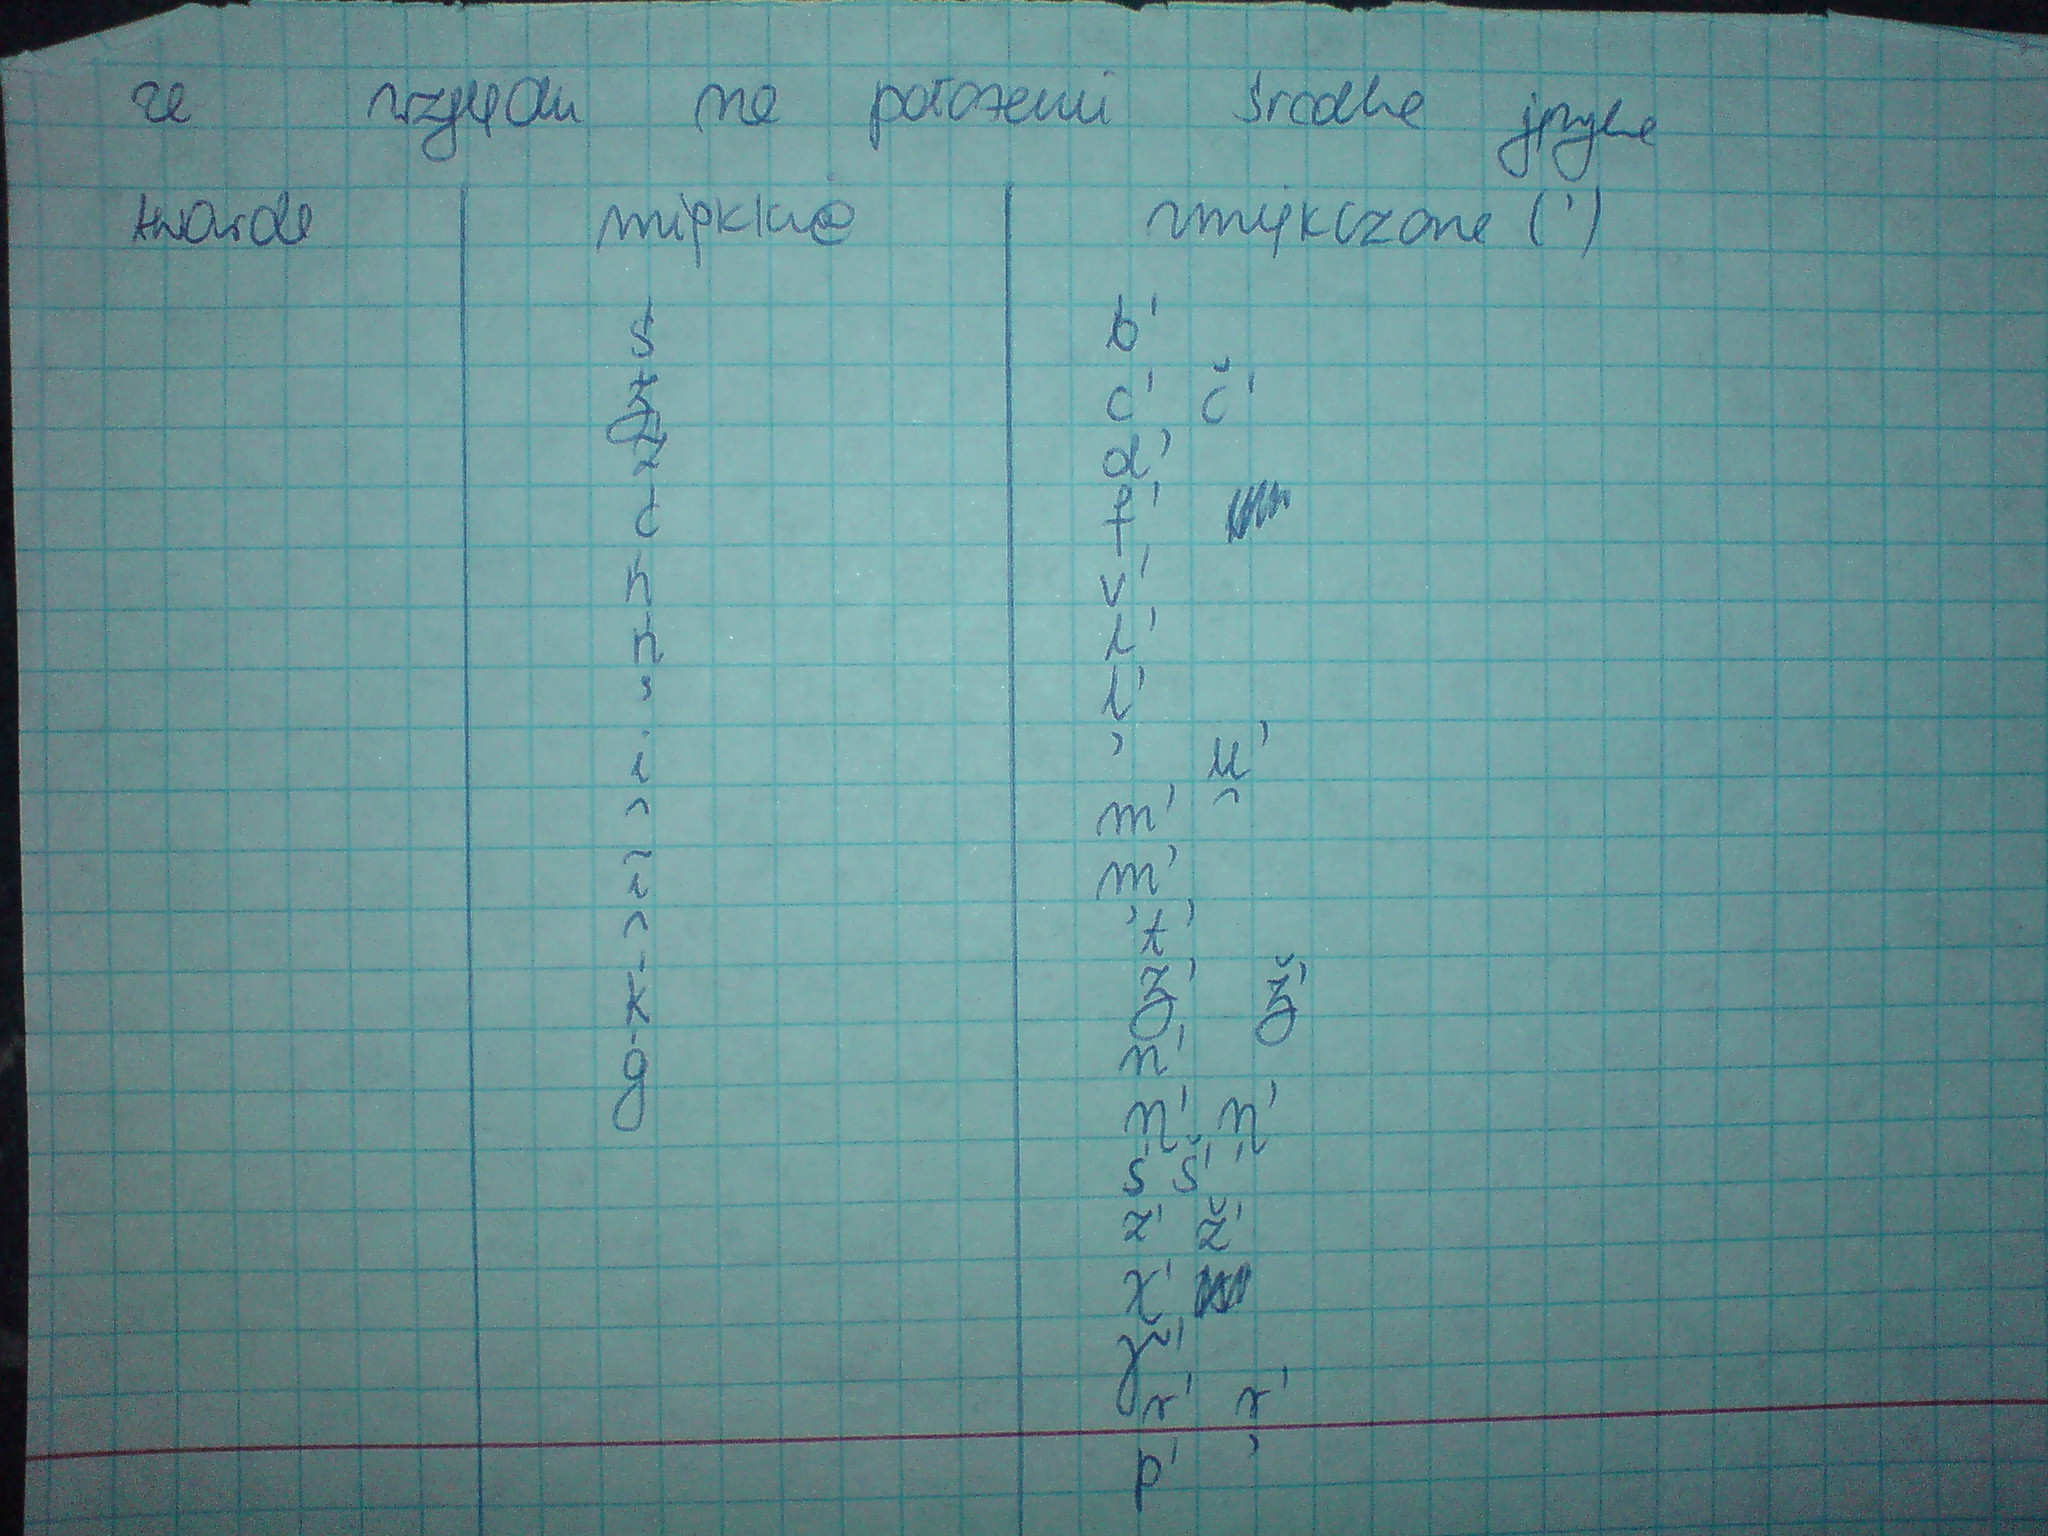 ze względu na położeni środka języka
twarde miękkie zmiękczone (')
ś b'
ʒ́ c' č'
ź d'
ć f'
ń v'
ń l'
i̯ u̯'
m'
ĩ̯ m'
t'
ḱ ʒ' ǯ'
ǵ n'
ŋ' ŋ'
s' š'
z' ž'
χ'
γ̃'
r' r̥'
p'